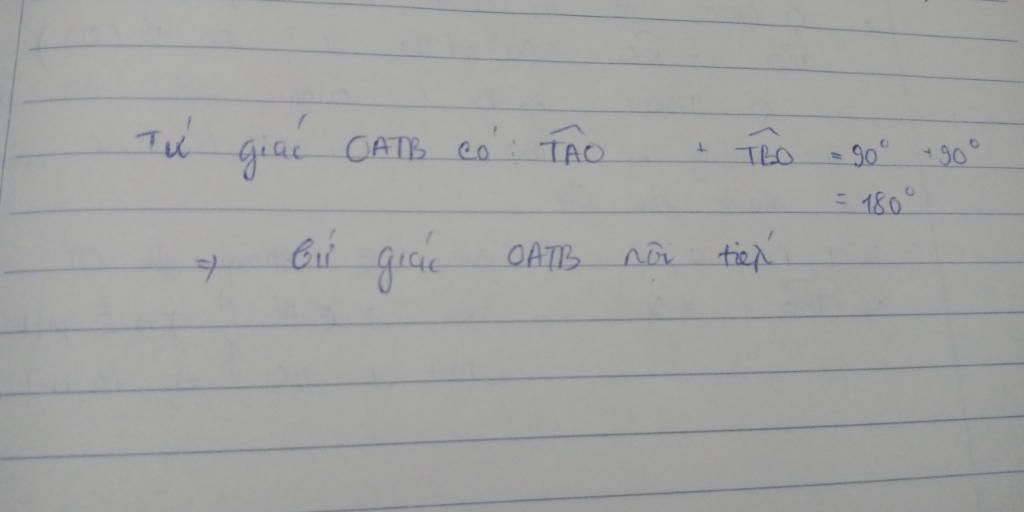 Tứ giác OATB có: \widehat{TAO} + \widehat{TBO} = 90° + 90°
= 180°
⇒ tứ giác OATB nội tiếp